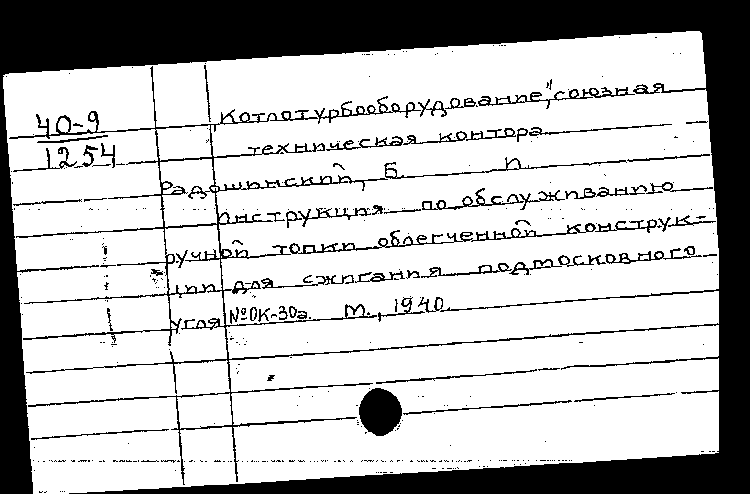 40-9
1254
„Котлотурбооборудование", союзная
техническая контора
Радошинский, Б. П.
Инструкция по обслуживанию
ручной топки облегченной конструк-
ции для сжигания подмосковного
угля №ОК-30а. М., 1940.